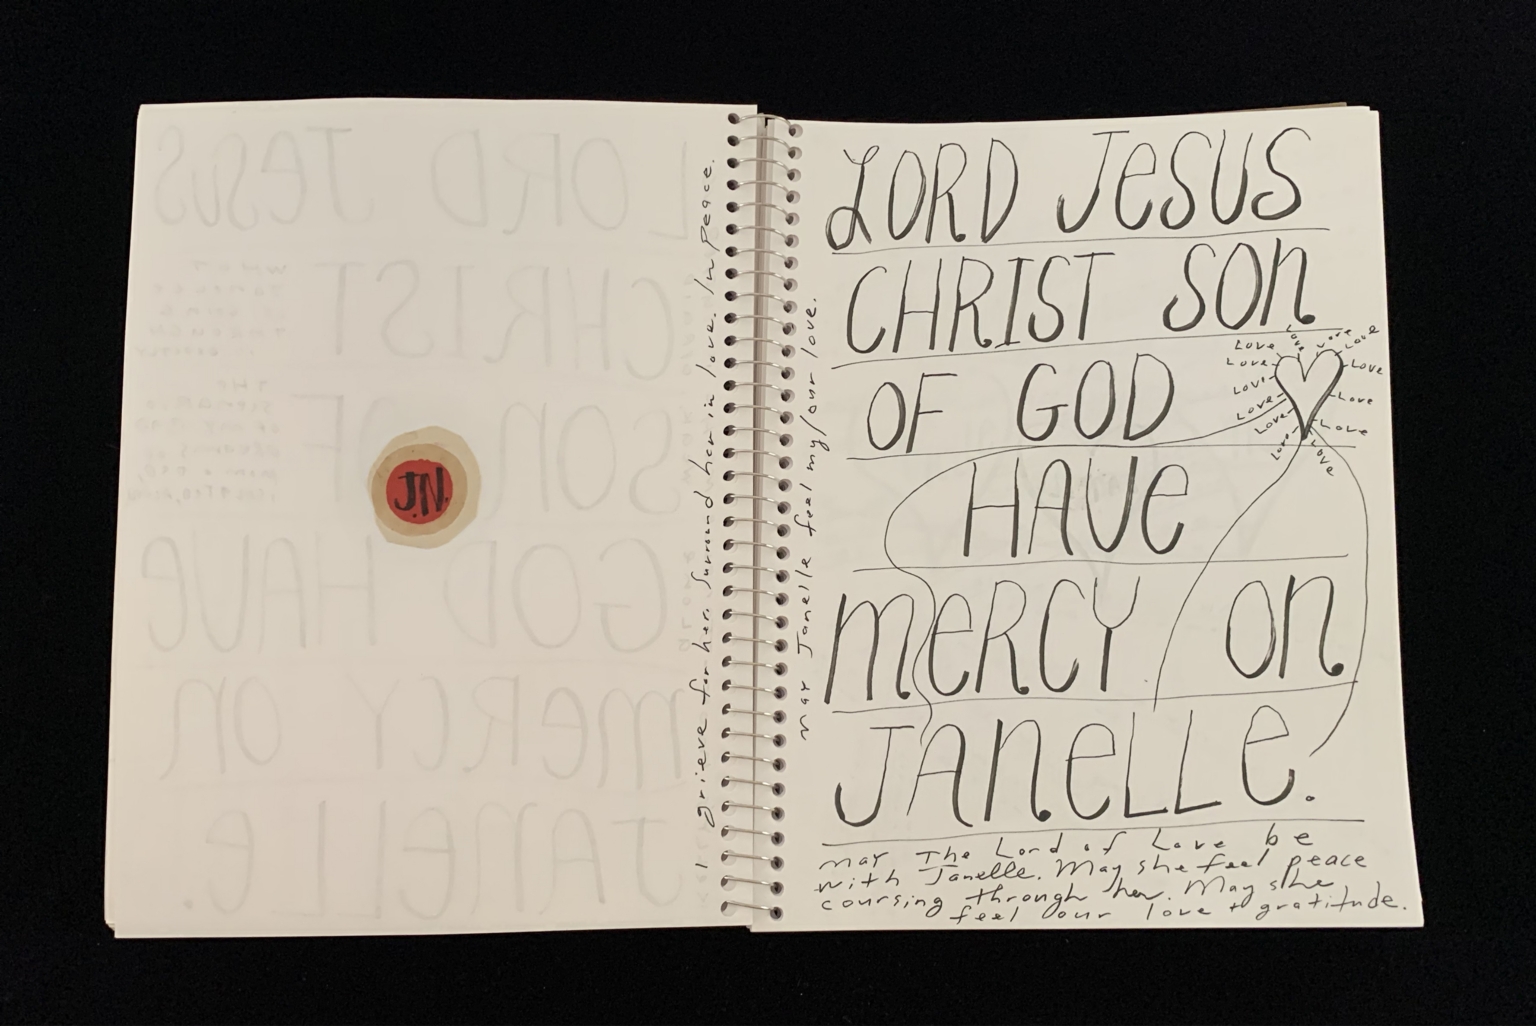 J.N.
I grieve for her. Surround her in love. In peace.
May Janelle feel my/our love.
LORD JESUS
CHRIST SON
OF GOD
HAVE
MERCY ON
JANELLE.
Love
Love
Love
Love
Love
Love
Love
Love
Love
Love
Love
Love
Love
Love
May The Lord of Love be
with Janelle. May she feel peace
coursing through her. May she
feel our love + gratitude.